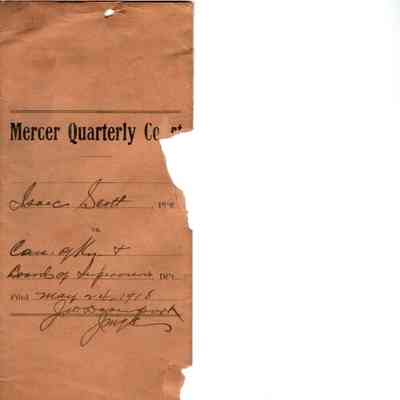 Mercer Quarterly Co rt
Isaac Scott
vs
Com. of Ky &
Board of Supervisors DEF
Filed May 24, 1918